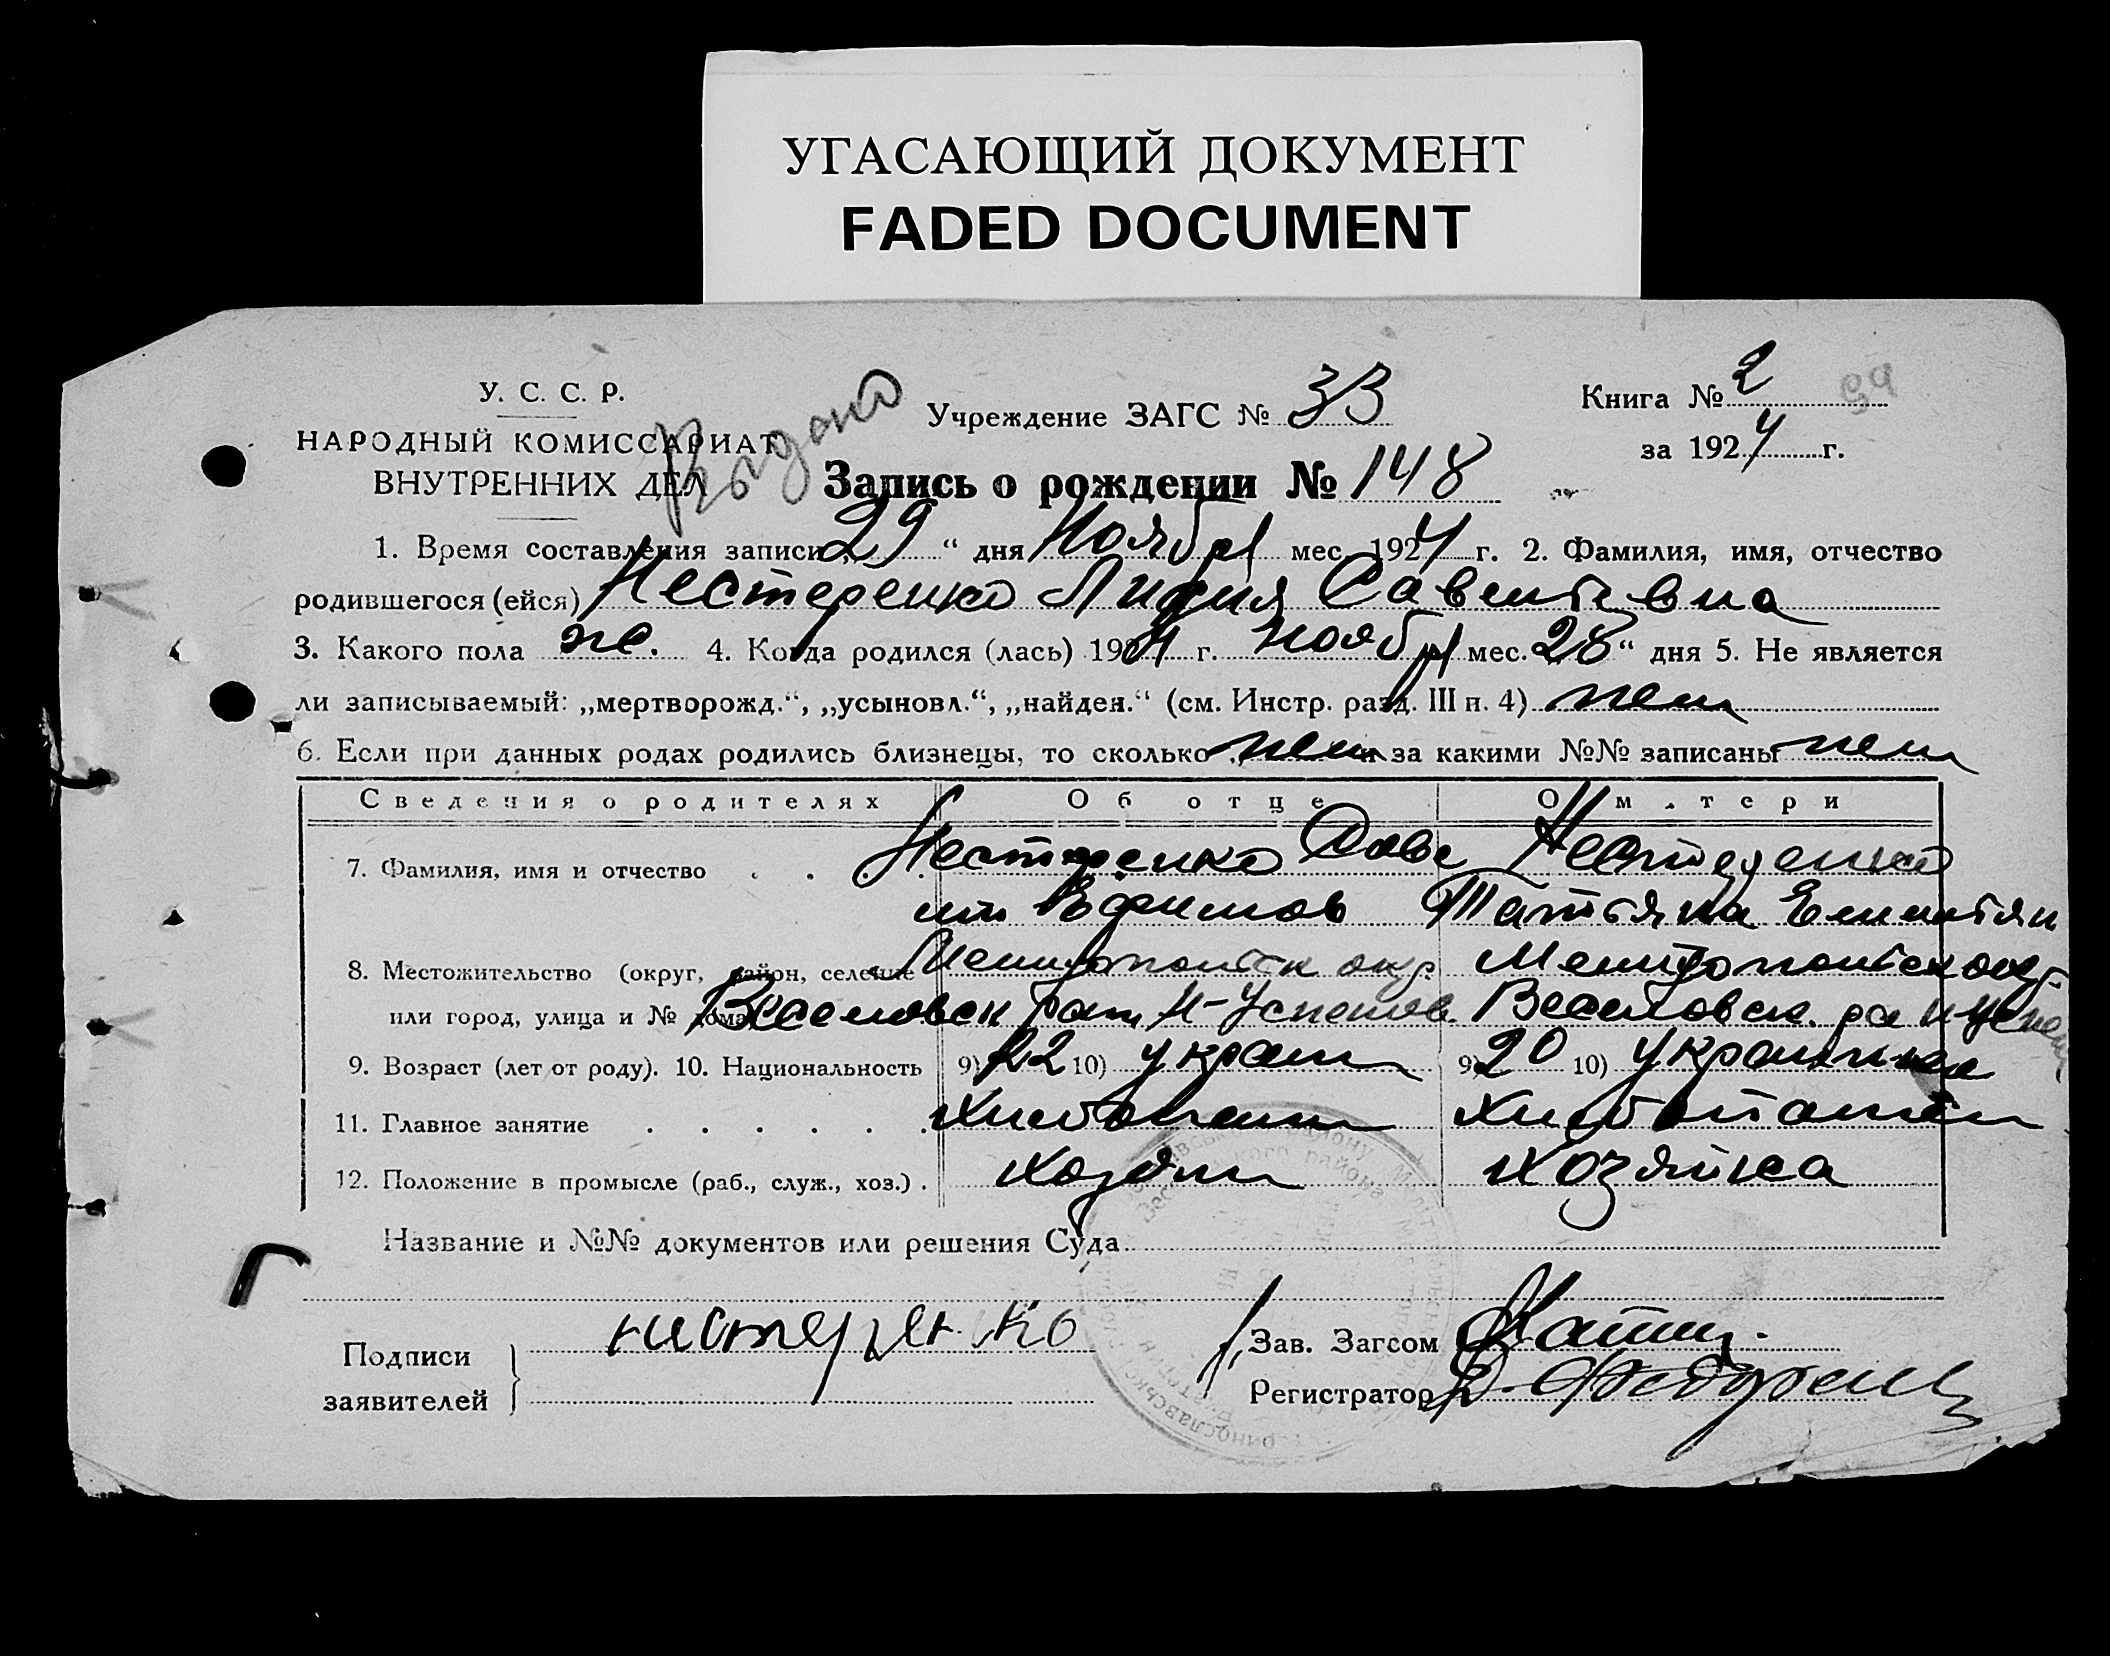 УГАСАЮЩИЙ ДОКУМЕНТ
FADED DOCUMENT
У. С. С. Р.
НАРОДНЫЙ КОМИССАРИАТ
ВНУТРЕННИХ ДЕЛ
Выдано
Учреждение ЗАГС №
Книга № 2
за 1924 г.
Запись о рождении № 148
1. Время составления записи „29“ дня Ноябр мес. 1924 г. 2. Фамилия, имя, отчество
родившегося (ейся) Нестеренко Лидия Савельевна
3. Какого пола же. 4. Когда родился (лась) 1924 г. ноябр мес. „28“ дня 5. Не является
ли записываемый: „мертворожд.“, „усыновл.“, „найден.“ (см. Инстр. разд. III п. 4) нет
6. Если при данных родах родились близнецы, то сколько нет и за какими №№ записаны нет
Сведения о родителях Об отце О матери
7. Фамилия, имя и отчество Нестеренко Саве Нестеренко
лий Ефимов Татьяна Емельян
8. Местожительство (округ, район, селение Мелитопольск окр. Мелитопольск окр.
или город, улица и № дома) Веселовск рай Н-Успенов. Веселовск. ра Н-Успен
9. Возраст (лет от роду). 10. Национальность 9) 22 10) украин 9) 20 10) украинка
11. Главное занятие Хлебопаш Хлебопашен
12. Положение в промысле (раб., служ., хоз.) хозяин хозяйка
Название и №№ документов или решения Суда
Подписи
заявителей
нистерен ко
Зав. Загсом
Регистратор